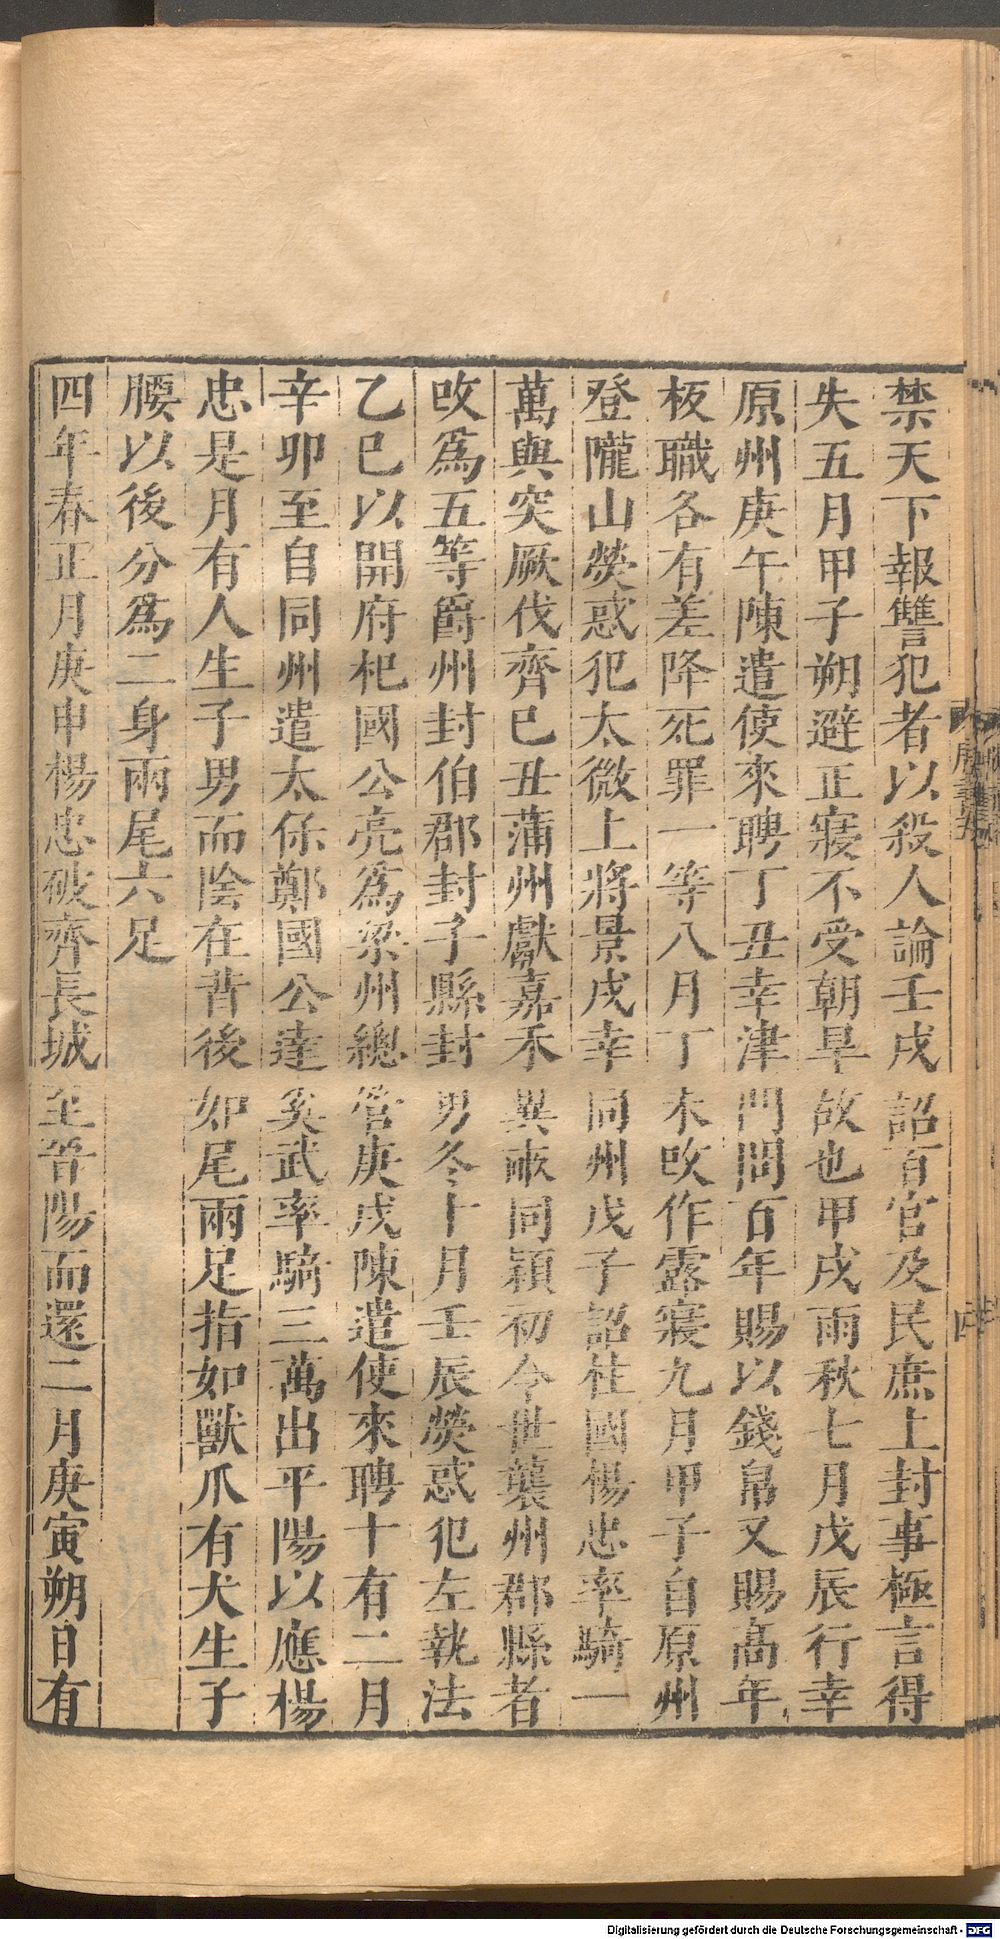 禁天下報讐犯者以殺人論壬戌詔百官及民庶上封事極言得
失五月甲子朔避正寢不受朝旱故也甲戌雨秋七月戊辰行幸
原州庚午陳遣使來聘丁丑幸津門問百年賜以錢帛又賜高年
板職各有差降死罪一等八月丁未改作露寢九月甲子自原州
登隴山熒惑犯太微上將景戌幸同州戊子詔柱國楊忠率騎一
萬與突厥伐齊已丑蒲州獻嘉禾異畝同穎初令世襲州郡縣者
改爲五等爵州封伯郡封子縣封男冬十月壬辰熒惑犯左執法
乙巳以開府杞國公亮爲梁州總管庚戌陳遣使來聘十有二月
辛卯至自同州遣太保鄭國公達奚武率騎三萬出平陽以應楊
忠是月有人生子男而陰在背後如尾兩足指如獸爪有犬生子
腰以後分爲二身兩尾六足
四年春正月庚申楊忠破齊長城至晉陽而還二月庚寅朔日有
Digitalisierung gefördert durch die Deutsche Forschungsgemeinschaft - DFG